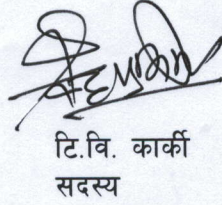 टि.वि. कार्की
सदस्य